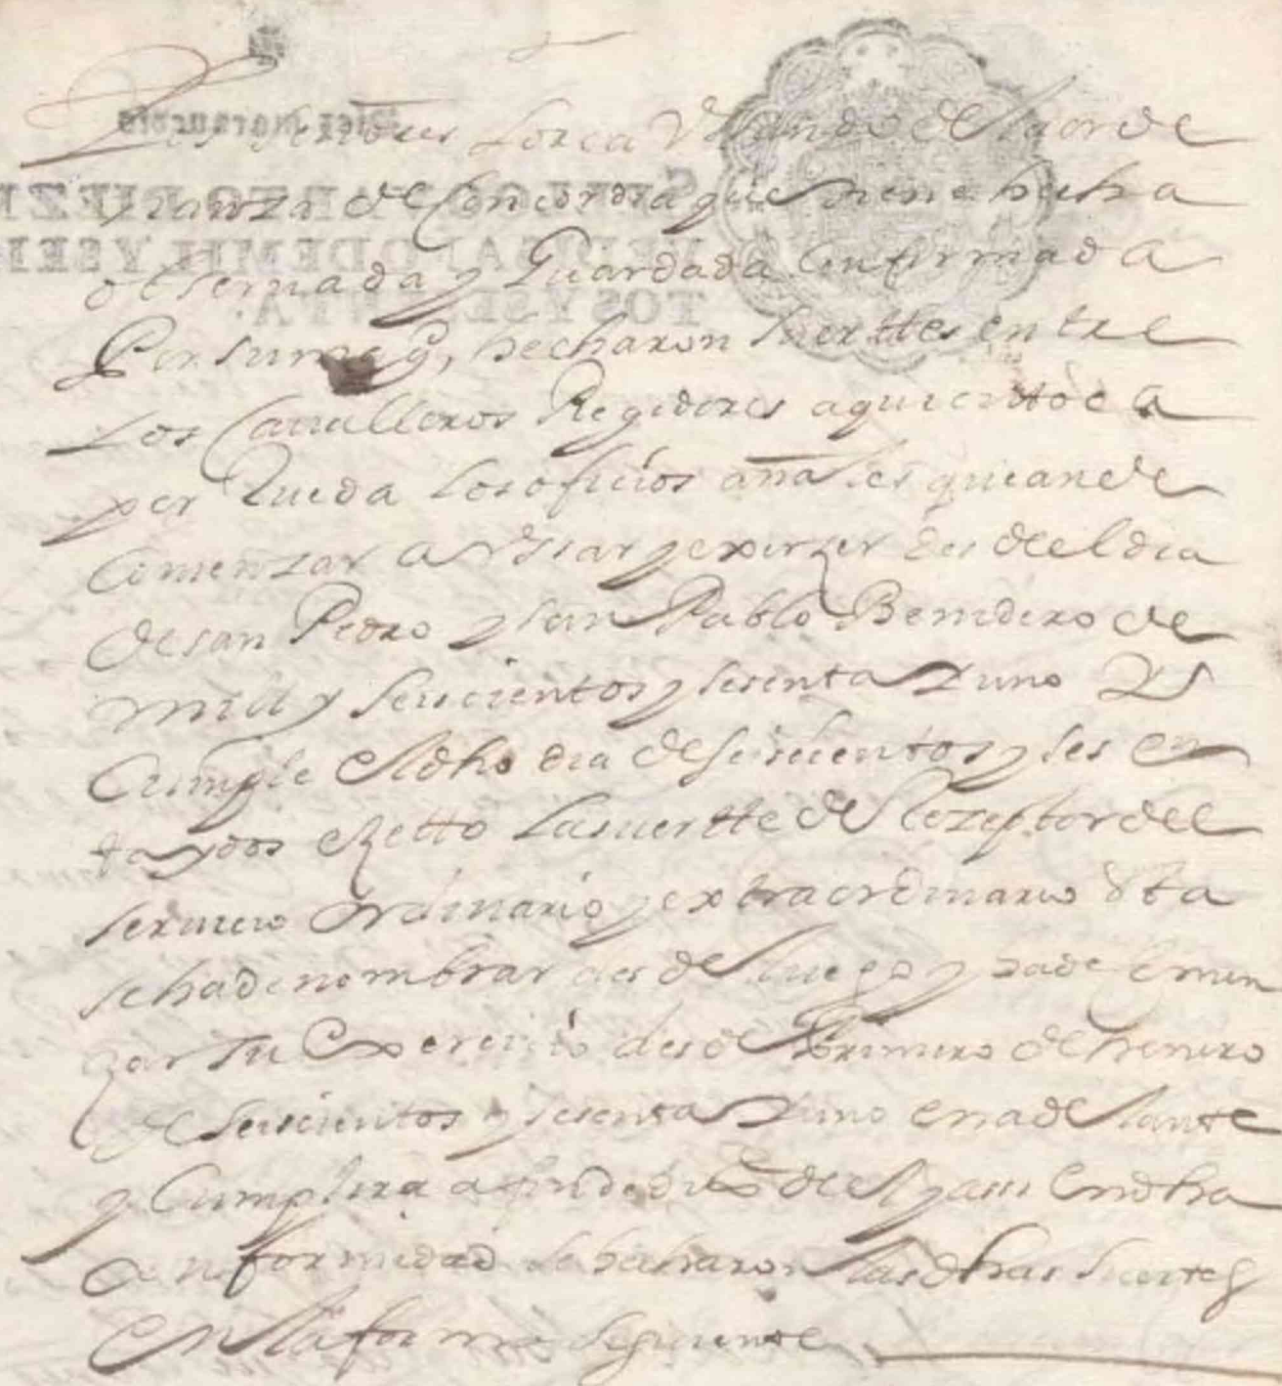 Los señores Lorca Vssando de la orde
nanza de Concordia que tiene hecha
obseruada y Guardada Confirmada
Por su mag, hecharon suerttes entre
Los Caualleros Regidores a quien toca
por Rueda los oficios añales que an de
Comenzar a Vssar y exerzer desde el dia
de san Pedro y san Pablo Benidero de
mill y seiscientos y sesenta y uno y se
Cumple el dho dia de seiscientos y sesen
ta y dos eZetto La suertte de Rezeptor del
seruicio ordinario y extraordinario
se ha de nombrar desde luego y a de Comen
zar su exercicio desde Primero de henero
de seiscientos y sesenta y uno en adelante
y Cumplira a fin de de el y assi en dha
Conformidad se hecharon las dhas suertes
en la forma siguiente
Diez marauedis
SELLO QVARTO, DIEZ M
AÑO DE MIL Y SEIS
TOS Y SESENTA.